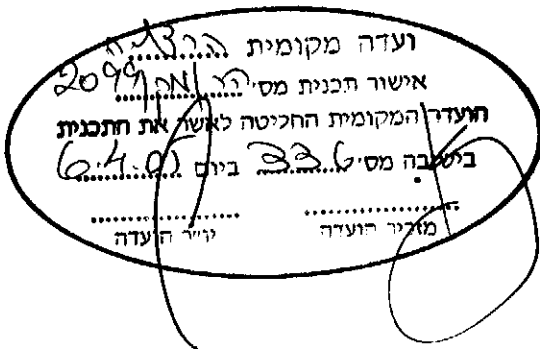 ועדה מקומית הרצליה
אישור תכנית מס' הר/מק/2099
הועדה המקומית החליטה לאשר את התכנית
בישיבה מס' 336 ביום 6.4.05
מזכיר הועדה יו״ר הועדה